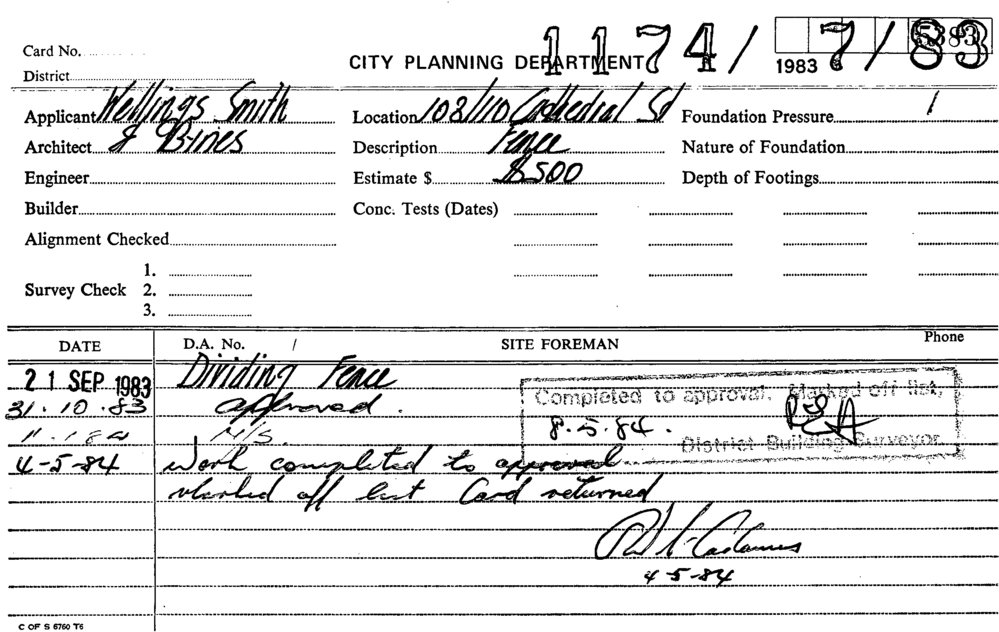 Card No.
CITY PLANNING DEPARTMENT
1174/7/83
1983
District
Applicant Wellings Smith
Location 108/110 Cathedral St
Foundation Pressure /
Architect & Byrnes
Description Fence
Nature of Foundation
Engineer
Estimate $ $500
Depth of Footings
Builder
Conc. Tests (Dates)
Alignment Checked
Survey Check 1.
2.
3.
DATE D.A. No. / SITE FOREMAN Phone
21 SEP 1983 Dividing Fence
31.10.83 approved.
Completed to approval. Marked off list,
8.5.84.
District Building Surveyor.
11.1.84 N/S.
4-5-84 Work completed to approval
Marked off list Card returned
4-5-84
C OF S 6760 T6